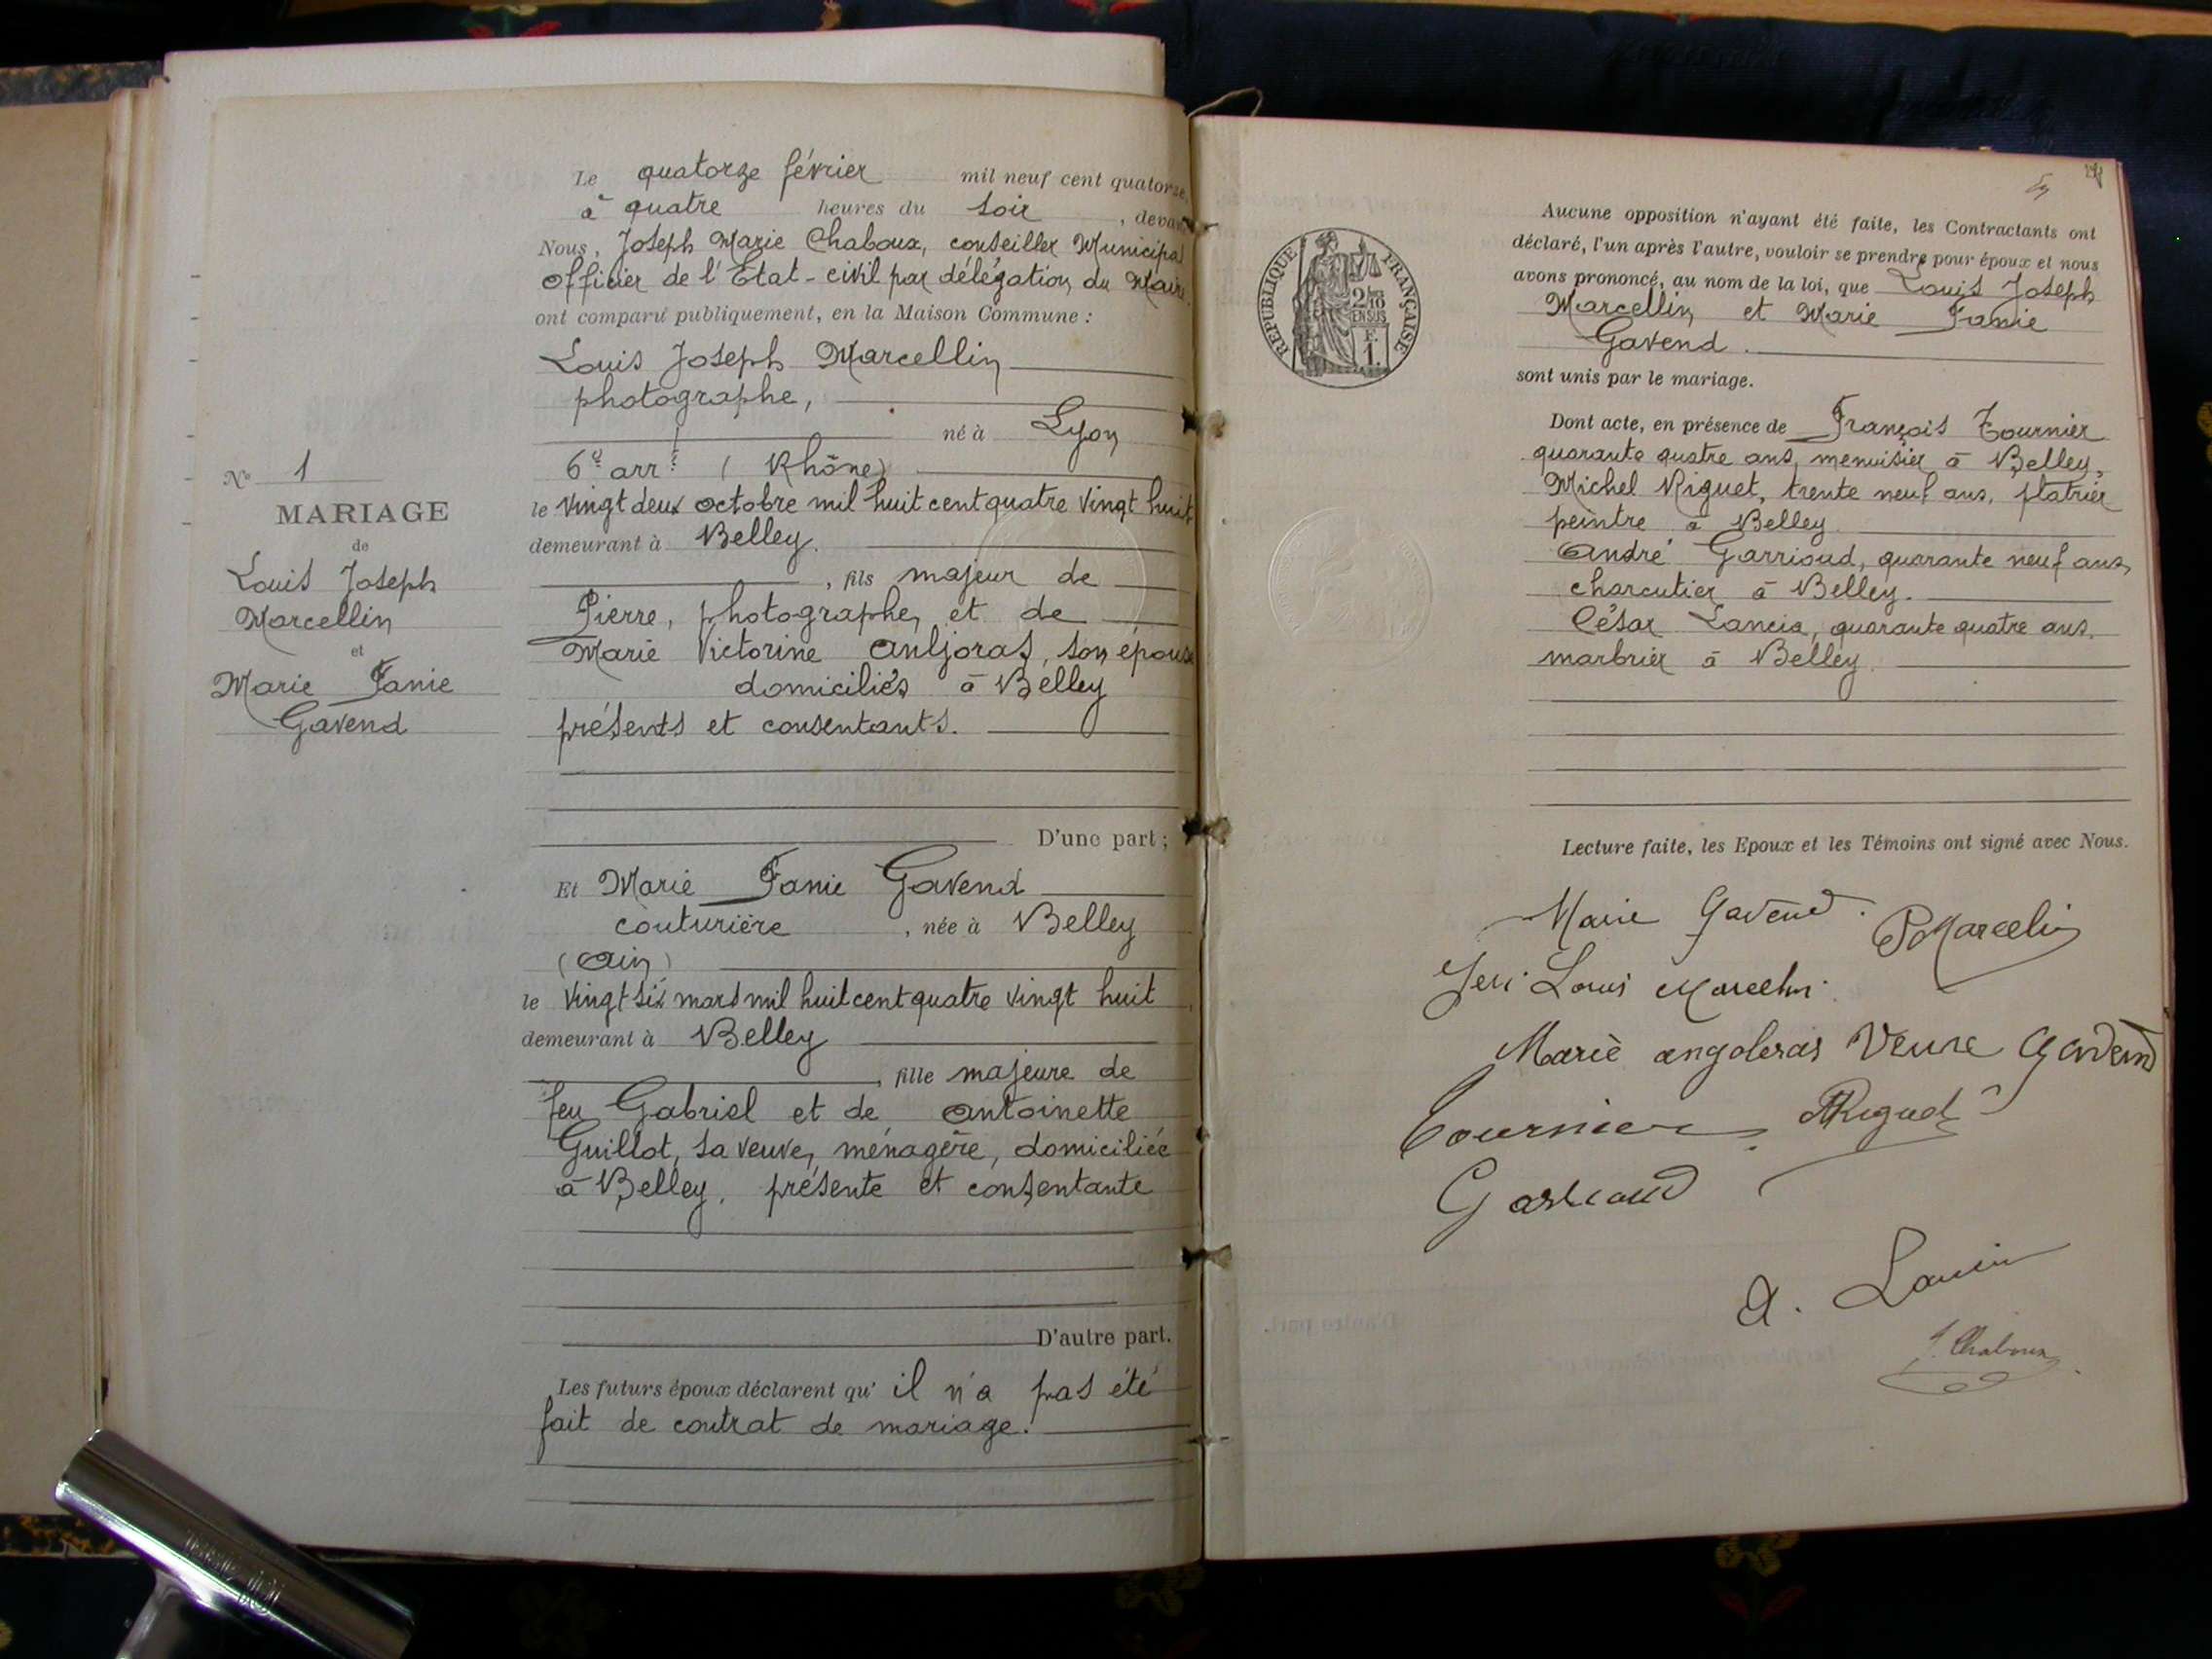 Le quatorze février mil neuf cent quatorze,
à quatre heures du soir, devant
Nous, Joseph Marie Chaboux, conseiller Municipal
officier de l'État-civil par délégation du Maire.
ont comparu publiquement, en la Maison Commune :
Louis Joseph Marcellin
photographe,
né à Lyon
6e arrt (Rhône)
le vingt deux octobre mil huit cent quatre vingt huit,
demeurant à Belley.
, fils majeur de
Pierre, photographe, et de
Marie Victorine Anljoras, son épouse
domiciliés à Belley
présents et consentants.
D'une part ;
No 1
MARIAGE
de
Louis Joseph
Marcellin
et
Marie Fanie
Gavend
Et Marie Fanie Gavend
couturière, née à Belley
(Ain)
le vingt six mars mil huit cent quatre vingt huit
demeurant à Belley
, fille majeure de
feu Gabriel et de Antoinette
Guillot, sa veuve, ménagère, domiciliée
à Belley, présente et consentante
D'autre part.
Les futurs époux déclarent qu' il n'a pas été
fait de contrat de mariage.
REPUBLIQUE FRANÇAISE
2/10
EN SUS
F.
1.
Aucune opposition n'ayant été faite, les Contractants ont
déclaré, l'un après l'autre, vouloir se prendre pour époux et nous
avons prononcé, au nom de la loi, que Louis Joseph
Marcellin et Marie Fanie
Gavend.
sont unis par le mariage.
Dont acte, en présence de François Tournier
quarante quatre ans, menuisier à Belley,
Michel Riguet, trente neuf ans, platrier
peintre à Belley
André Garrioud, quarante neuf ans,
charcutier à Belley.
César Lancia, quarante quatre ans,
marbrier à Belley.
Lecture faite, les Epoux et les Témoins ont signé avec Nous.
Marie Gavend. P Marcelin
Louis Marcelin
Marie angoleras Veuve Gavend
Tournier Riguet
Garrioud
J. Chaboux